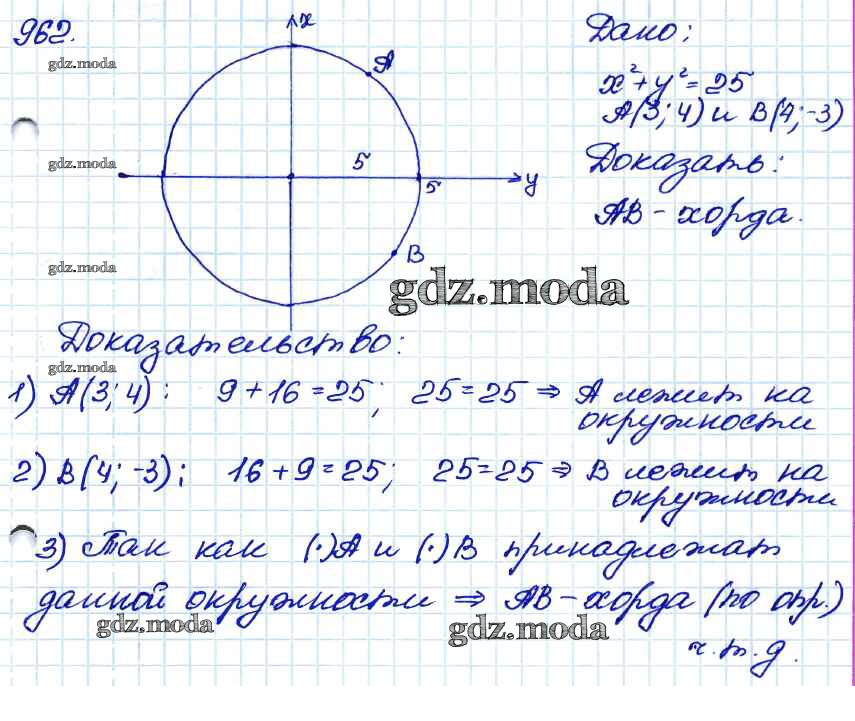 962.
x
A
5
y
5
B
Дано:
x² + y² = 25
A(3; 4) и B(4; -3)
Доказать:
AB - хорда.
gdz.moda
gdz.moda
gdz.moda
gdz.moda
Доказательство:
gdz.moda
1) A(3; 4): 9 + 16 = 25; 25 = 25 ⇒ A лежит на
окружности
2) B(4; -3); 16 + 9 = 25; 25 = 25 ⇒ B лежит на
окружности
3) Так как (·)A и (·)B принадлежат
данной окружности ⇒ AB - хорда (по опр.)
gdz.moda
gdz.moda
ч.т.д.